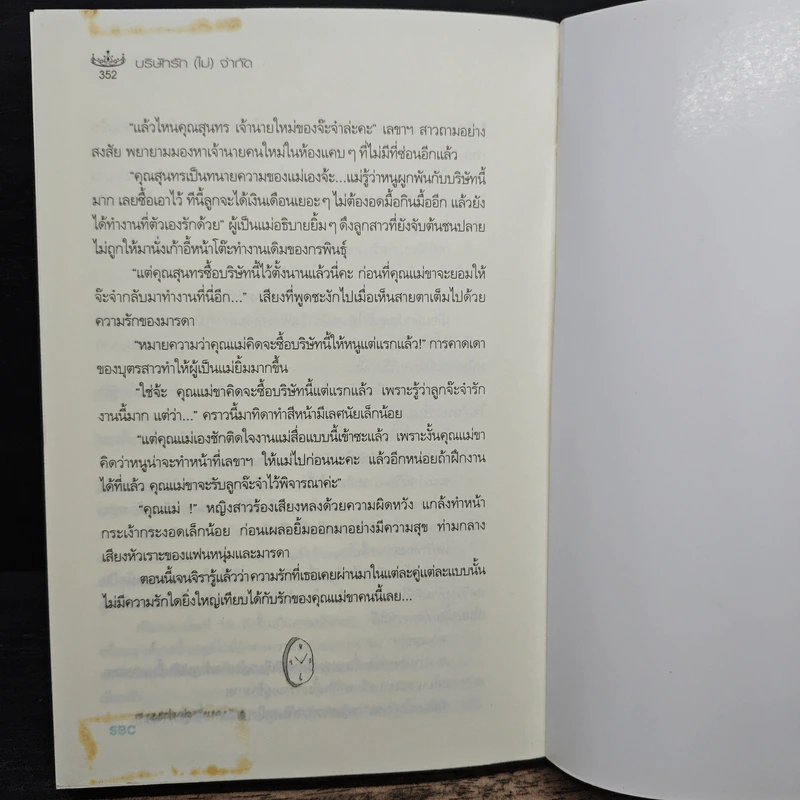 352
บริษัทรัก (ไม่) จำกัด
"แล้วไหนคุณสุนทร เจ้านายใหม่ของจ๊ะจ๋าล่ะคะ" เลขาฯ สาวถามอย่าง
สงสัย พยายามมองหาเจ้านายคนใหม่ในห้องแคบๆ ที่ไม่มีที่ซ่อนอีกแล้ว
"คุณสุนทรเป็นทนายความของแม่เองจ้ะ...แม่รู้ว่าหนูผูกพันกับบริษัทนี้
มาก เลยซื้อเอาไว้ ทีนี้ลูกจะได้เงินเดือนเยอะๆ ไม่ต้องอดมื้อกินมื้ออีก แล้วยัง
ได้ทำงานที่ตัวเองรักด้วย" ผู้เป็นแม่อธิบายยิ้มๆ ดึงลูกสาวที่ยังจับต้นชนปลาย
ไม่ถูกให้มานั่งเก้าอี้หน้าโต๊ะทำงานเดิมของกรพินธุ์
"แต่คุณสุนทรซื้อบริษัทนี้ไว้ตั้งนานแล้วนี่คะ ก่อนที่คุณแม่ขาจะยอมให้
จ๊ะจ๋ากลับมาทำงานที่นี่อีก..." เสียงที่พูดชะงักไปเมื่อเห็นสายตาเต็มไปด้วย
ความรักของมารดา
"หมายความว่าคุณแม่คิดจะซื้อบริษัทนี้ให้หนูแต่แรกแล้ว!" การคาดเดา
ของบุตรสาวทำให้ผู้เป็นแม่ยิ้มมากขึ้น
"ใช่จ้ะ คุณแม่ขาคิดจะซื้อบริษัทนี้แต่แรกแล้ว เพราะรู้ว่าลูกจ๊ะจ๋ารัก
งานนี้มาก แต่ว่า..." คราวนี้มาทิดาทำสีหน้ามีเลศนัยเล็กน้อย
"แต่คุณแม่เองชักติดใจงานแม่สื่อแบบนี้เข้าซะแล้ว เพราะงั้นคุณแม่ขา
คิดว่าหนูน่าจะทำหน้าที่เลขาฯ ให้แม่ไปก่อนนะคะ แล้วอีกหน่อยถ้าฝึกงาน
ได้ที่แล้ว คุณแม่ขาจะรับลูกจ๊ะจ๋าไว้พิจารณาค่ะ"
"คุณแม่ !" หญิงสาวร้องเสียงหลงด้วยความผิดหวัง แกล้งทำหน้า
กระเง้ากระงอดเล็กน้อย ก่อนเผลอยิ้มออกมาอย่างมีความสุข ท่ามกลาง
เสียงหัวเราะของแฟนหนุ่มและมารดา
ตอนนี้เจนจิรารู้แล้วว่าความรักที่เธอเคยผ่านมาในแต่ละคู่แต่ละแบบนั้น
ไม่มีความรักใดยิ่งใหญ่เทียบได้กับรักของคุณแม่ขาคนนี้เลย...
SBC